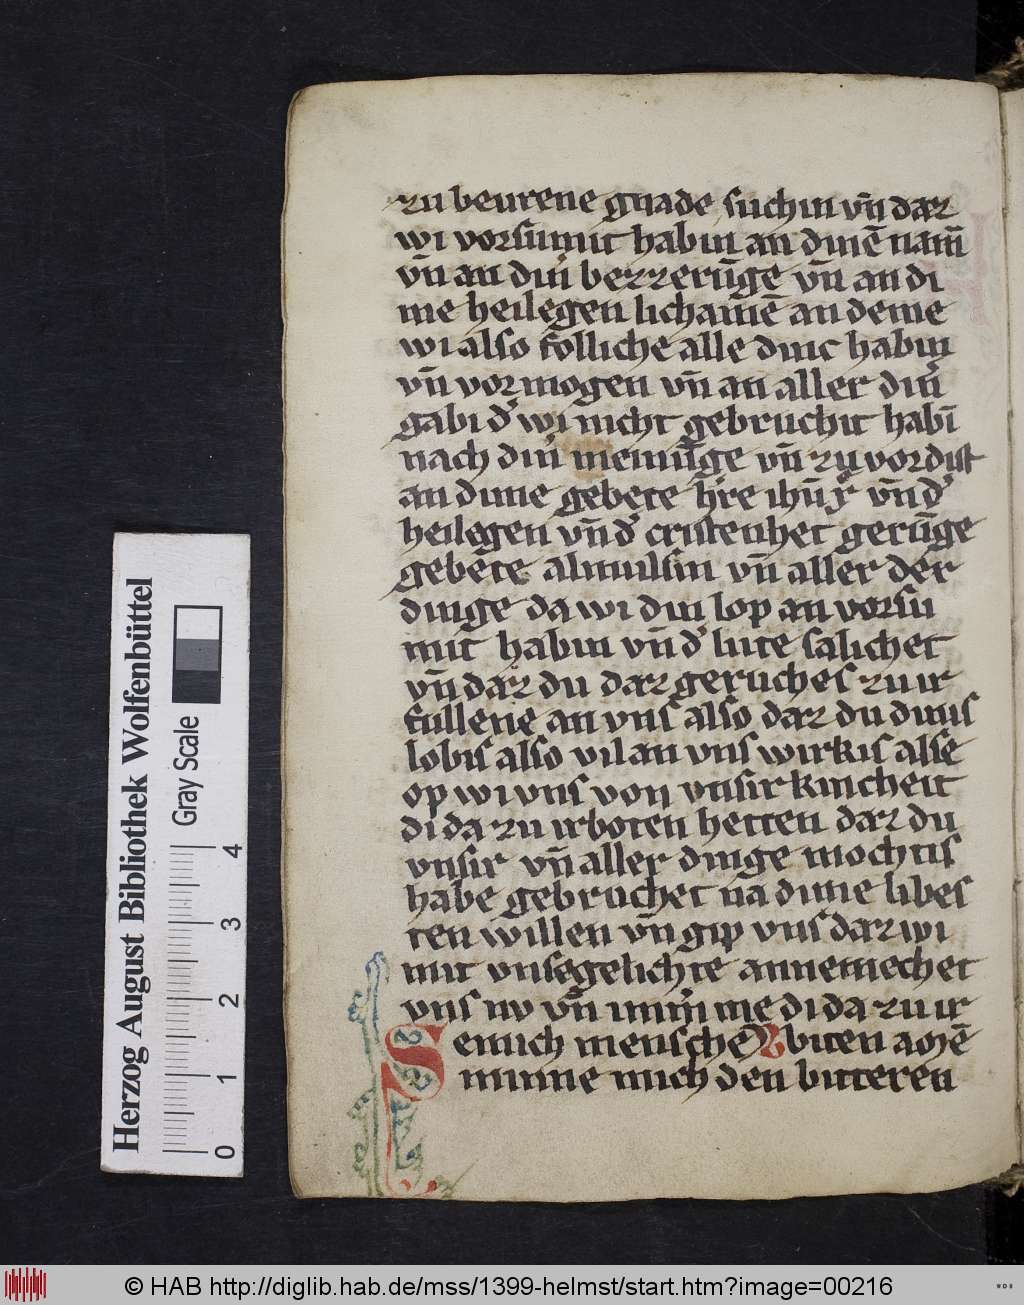 zu beurene gnade suchin vn̄ daz
wi vorsumit habin an dinē nam̄
vn̄ an din bezzerūge vn̄ an di
me heilegen lichamē an deme
wi also follliche alle dinc habin
vn̄ vormogen vn̄ an aller din̄
gabi d' wi nicht gebruchit habī
nach din̄ meinūge vn̄ zu vordist
an dime gebete h're ih'u x' vn̄ d'
heilegen vn̄ d' cristenhet gerūge
gebete almusin vn̄ aller der
dinge da wi din lop an vorsu
mit habin vn̄ d' lute salichet
vn̄ daz du daz geruches zu ir
fullene an vns also daz du dinis
lobis also vil an vns wirkis alse
op wi vns von vnsir kincheit
di da zu irboten hetten daz du
vnsir vn̄ aller dinge mochtis
habe gebruchet na dime libes
ten willen vn̄ gip vns daz wi
mit vnse gelichte annemechet
vns nv vn̄ imm' me di da zu ir
Semich mensche Bbiten a
minne mich den bitteren
Herzog August Bibliothek Wolfenbüttel
Gray Scale
0 1 2 3 4
© HAB http://diglib.hab.de/mss/1399-helmst/start.htm?image=00216